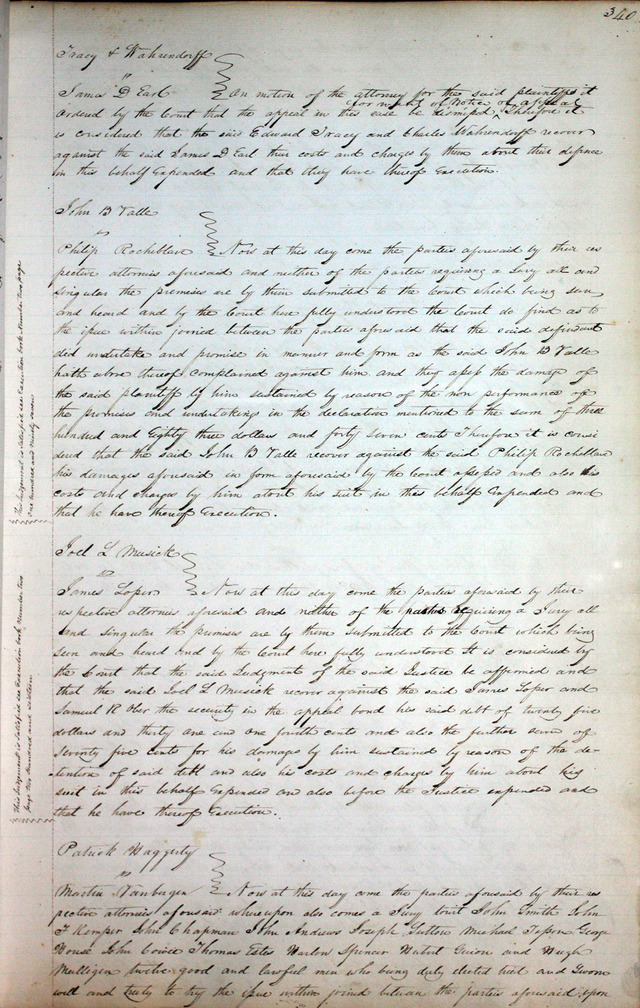 340
Tracy & Wahrendorff
vs
James D Earl On motion of the attorney for the said plaintiffs it
for want of Notice of appeal
ordered by the Court that the appeal in this case be dismissed, Therefore it
is considered that the said Edward Tracy and Charles Wahrendorff recover
against the said James D Earl their costs and charges by them about their defence
in this behalf Expended and that they have thereof Execution.
John B Valle
vs
Philip Rocheblave Now at this day come the parties aforesaid by their res
pective attornies aforesaid and neither of the parties requiring a Jury all and
Singular the premises are by them submitted to the Court which being seen
and heard and by the Court here fully understood the Court do find as to
the issue within joined between the parties aforesaid that the said defendant
did undertake and promise in manner and form as the said John B Valle
hath above thereof complained against him and they assess the damage of
the said plaintiff by him sustained by reason of the non performance of
the promises and undertaking in the declaration mentioned to the sum of three
hundred and Eighty three dollars and forty Seven Cents Therefore it is consi
dered that the said John B Valle recover against the said Philip Rocheblave
his damages aforesaid in form aforesaid by the Court assessed and also his
costs and charges by him about his suit in this behalf Expended and
that he have thereof Execution.
This Judgment is Satisfied see Execution book Number two page
one hundred and ninety seven
Joel L Musick
vs
James Loper Now at this day come the parties aforesaid by their
respective attornies aforesaid and neither of the parties requiring a Jury all
and singular the premises are by them submitted to the Court which being
Seen and heard and by the Court here fully understood It is considered by
the Court that the said Judgment of the said Justice be affirmed and
that the said Joel L Musick recover against the said James Loper and
Samuel R Ober the security in the appeal bond his said debt of twenty five
dollars and thirty one and one fourth cents and also the further sum of
Seventy five Cents for his damages by him sustained by reason of the de-
tention of said debt and also his costs and charges by him about his
suit in this behalf Expended and also before the Justice expended and
that he have thereof Execution.
This Judgment is Satisfied see Execution book Number two
page two hundred and sixteen
Patrick Haggerty
vs
Martin Vanbergen Now at this day come the parties aforesaid by their res
pective attornies aforesaid whereupon also comes a Jury towit John Smith John
T Kemper John Chapman John Andrews Joseph Sutton Michael Tesson George
House John Cowie Thomas Estes Harlow Spencer Hubert Guion and Hugh
Mulligen twelve good and lawful men who being duly elected tried and Sworn
well and truly to try the issue within joined between the parties aforesaid upon